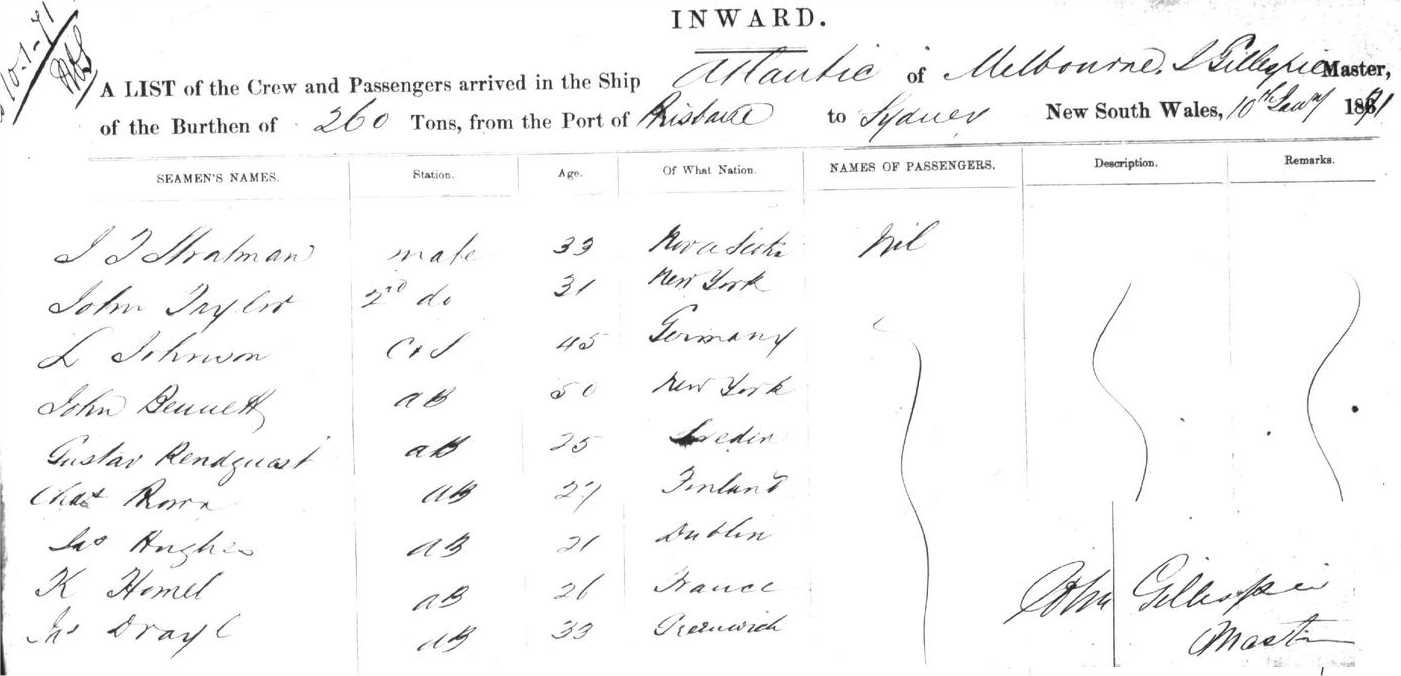 INWARD.
10-1-71
A LIST of the Crew and Passengers arrived in the Ship Atlantic of Melbourne, J Gillespie Master,
of the Burthen of 260 Tons, from the Port of Brisbane to Sydney New South Wales, 10th Jany 1871
SEAMEN'S NAMES. Station. Age. Of What Nation. NAMES OF PASSENGERS. Description. Remarks.
J T Stratman mate 33 Nova Scotia Nil
John Taylor 2nd do 31 New York
L Johnson C & S 45 Germany
John Bennett AB 50 New York
Gustav Rendquast AB 25 Sweden
Chas Brown AB 27 Finland
Jas Hughes AB 21 Dublin
K Homel AB 26 France
Jns Drayl AB 33 Greenwich
John Gillespie
Master